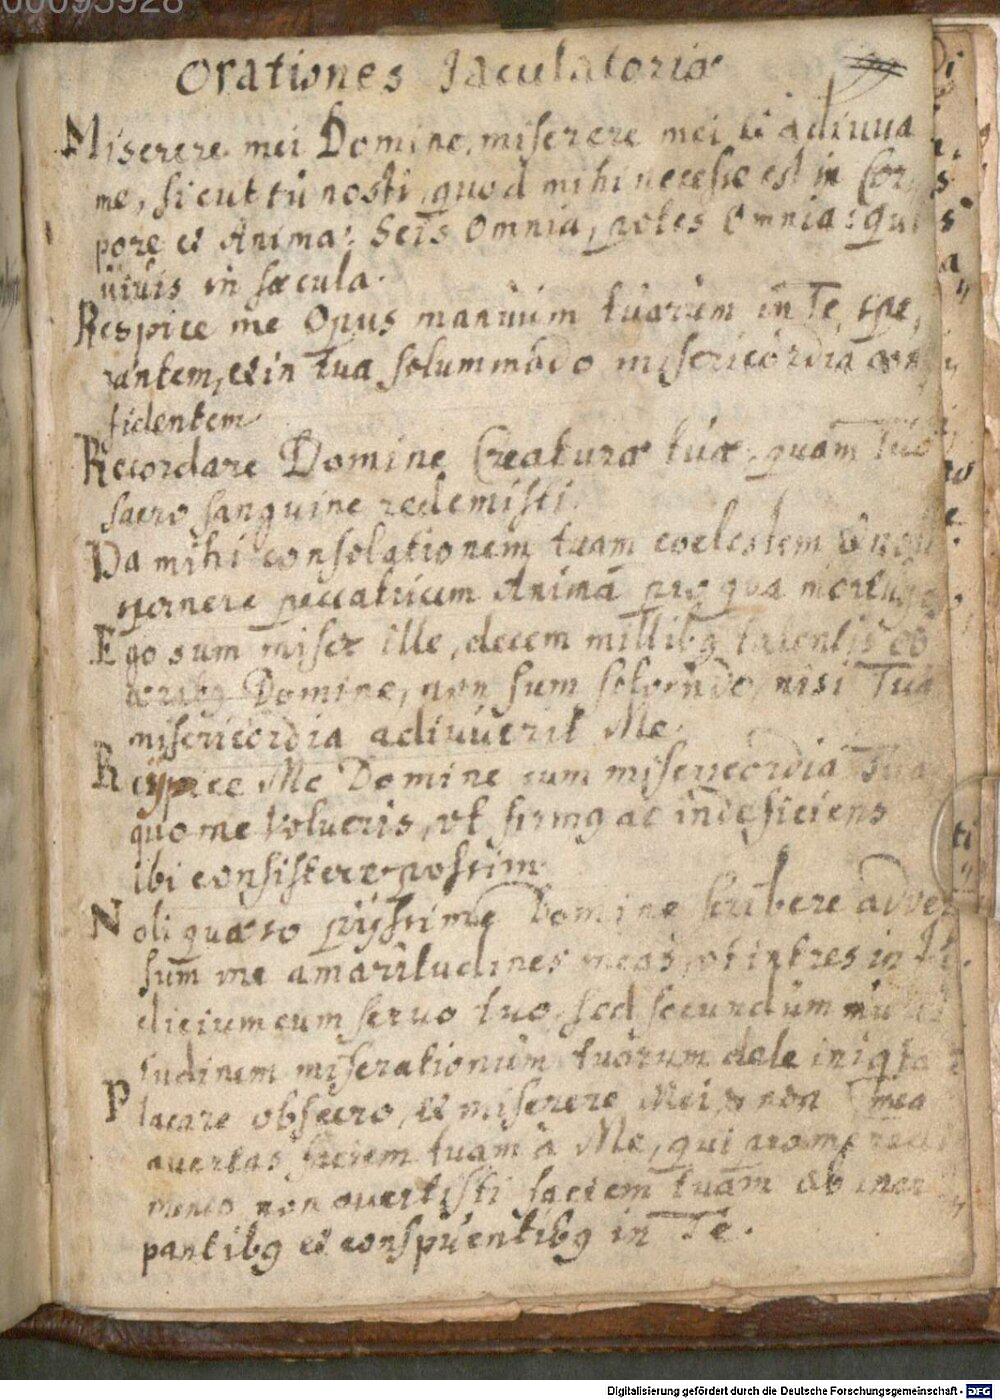 00095928
Orationes Jaculatoriæ
Miserere mei Domine, miserere mei & adiuua
me, sicut tu nosti, quod mihi necesse est in Cor,
pore et Anima: Scis Omnia, potes Omnia: qui
uiuis in sæcula.
Respice me Opus manuum tuarum in Te, spe,
rantem, et in Tua solummodo misericordia con
fidentem
Recordare Domine Creaturæ tuæ, quam Tuo
sacro sanguine redemisti.
Da mihi consolationem tuam coelestem & noli
spernere peccatricem Animā pro qua mortuus
Ego sum miser ille, decem millibꝫ talentis
Domine, non sum soluendo, nisi Tua
misericordia adiuuerit Me.
Respice Me Domine cum misericordia Tua
quo me volueris, vt firmꝰ ac indeficiens
ibi consistere possim.
Noli quæso pijssime Domine scribere adver
sum me amaritudines meas, vt intres in
dicium cum seruo tuo, sed secundum multi
tudinem miserationum tuarum dele iniqta
Placare obsecro, et miserere Mei, & non mea
auertas faciem tuam à Me, qui pro me
non auertisti faciem tuam ab incre
pantibꝫ et conspuentibꝫ in Te.
Digitalisierung gefördert durch die Deutsche Forschungsgemeinschaft - DFG